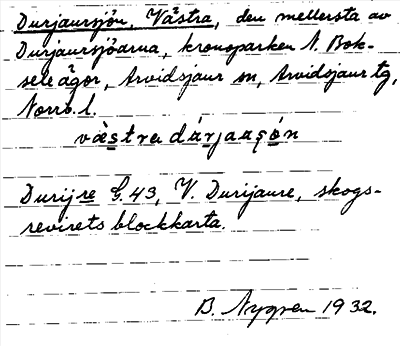 Durjaursjön, Västra, den mellersta av
Durjaursjöarna, kronoparken N. Bok-
sele ägor, Arvidsjaur sn, Arvidsjaur tg,
Norrb. l.
västra dúrjaụṣọ́n
Durijre G.43, V. Durijaure, skogs-
revirets blockkarta.
B. Nygren 1932.